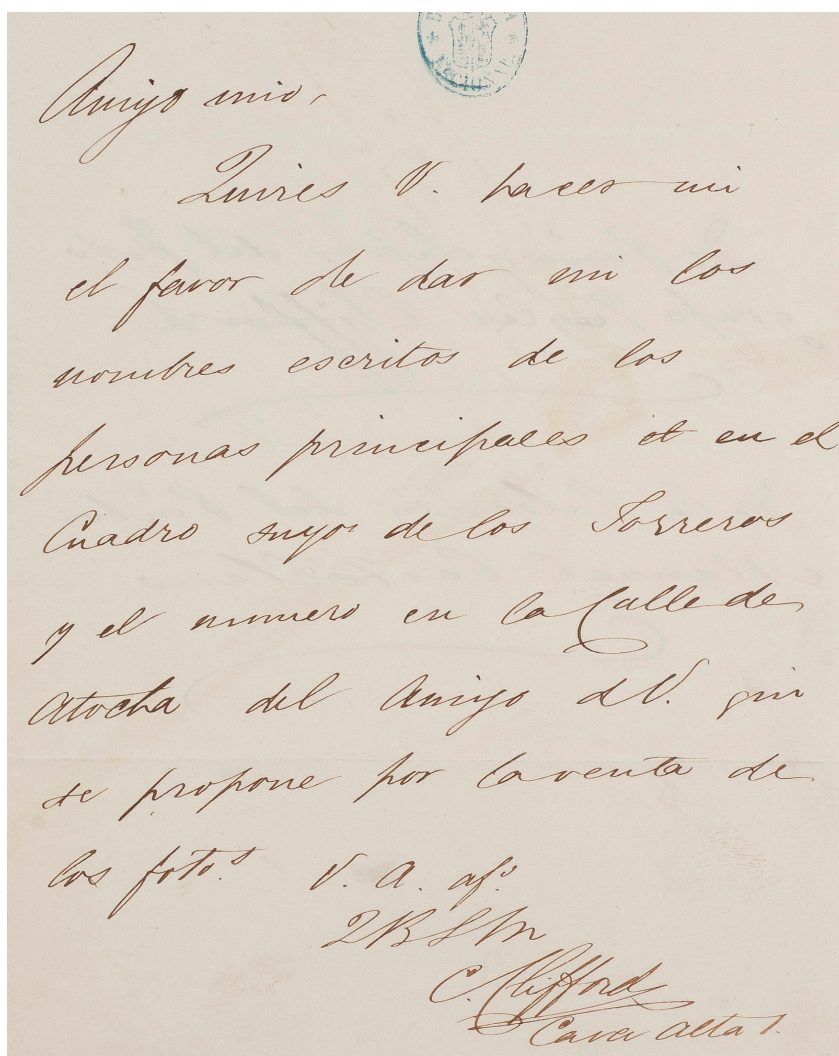 Amigo mio,
Quires V. hacer mi
el favor de dar mi los
nombres escritos de los
personas principales en el
Cuadro suyo de los Torreros
y el numero en la Calle de
Atocha del Amigo d V. qui
se propone por la venta de
los foto.s V. A. af.o
QBSM
C. Clifford
Cava Alta